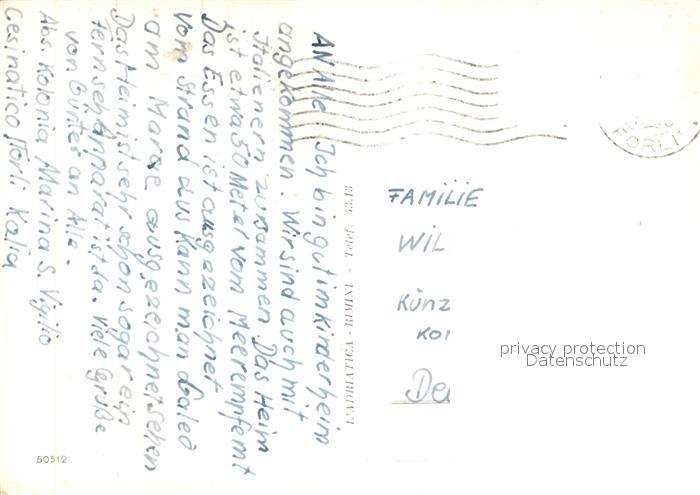 AN Alle. Ich bin gut im Kinderheim
angekommen. Wir sind auch mit
Italienern zusammen. Das Heim
ist etwa 50 Meter vom Meer empfernt
Das Essen ist ausgezeichnet
vom Strand aus Kann man
am ausgezeichnet sehen
Das Heim ist sehr schön sogar ein
Fernseh Apparat ist da. Viele Grüße
von Günter an Alle.
Abs. Kolonia Marina S. Vigilio
Cesinatico Forli Kalia
L'ADRIATICA - RIMINI - Telef.
FORLI
FAMILIE
WIL
KÜNZ
KO
De
privacy protection
Datenschutz
50512